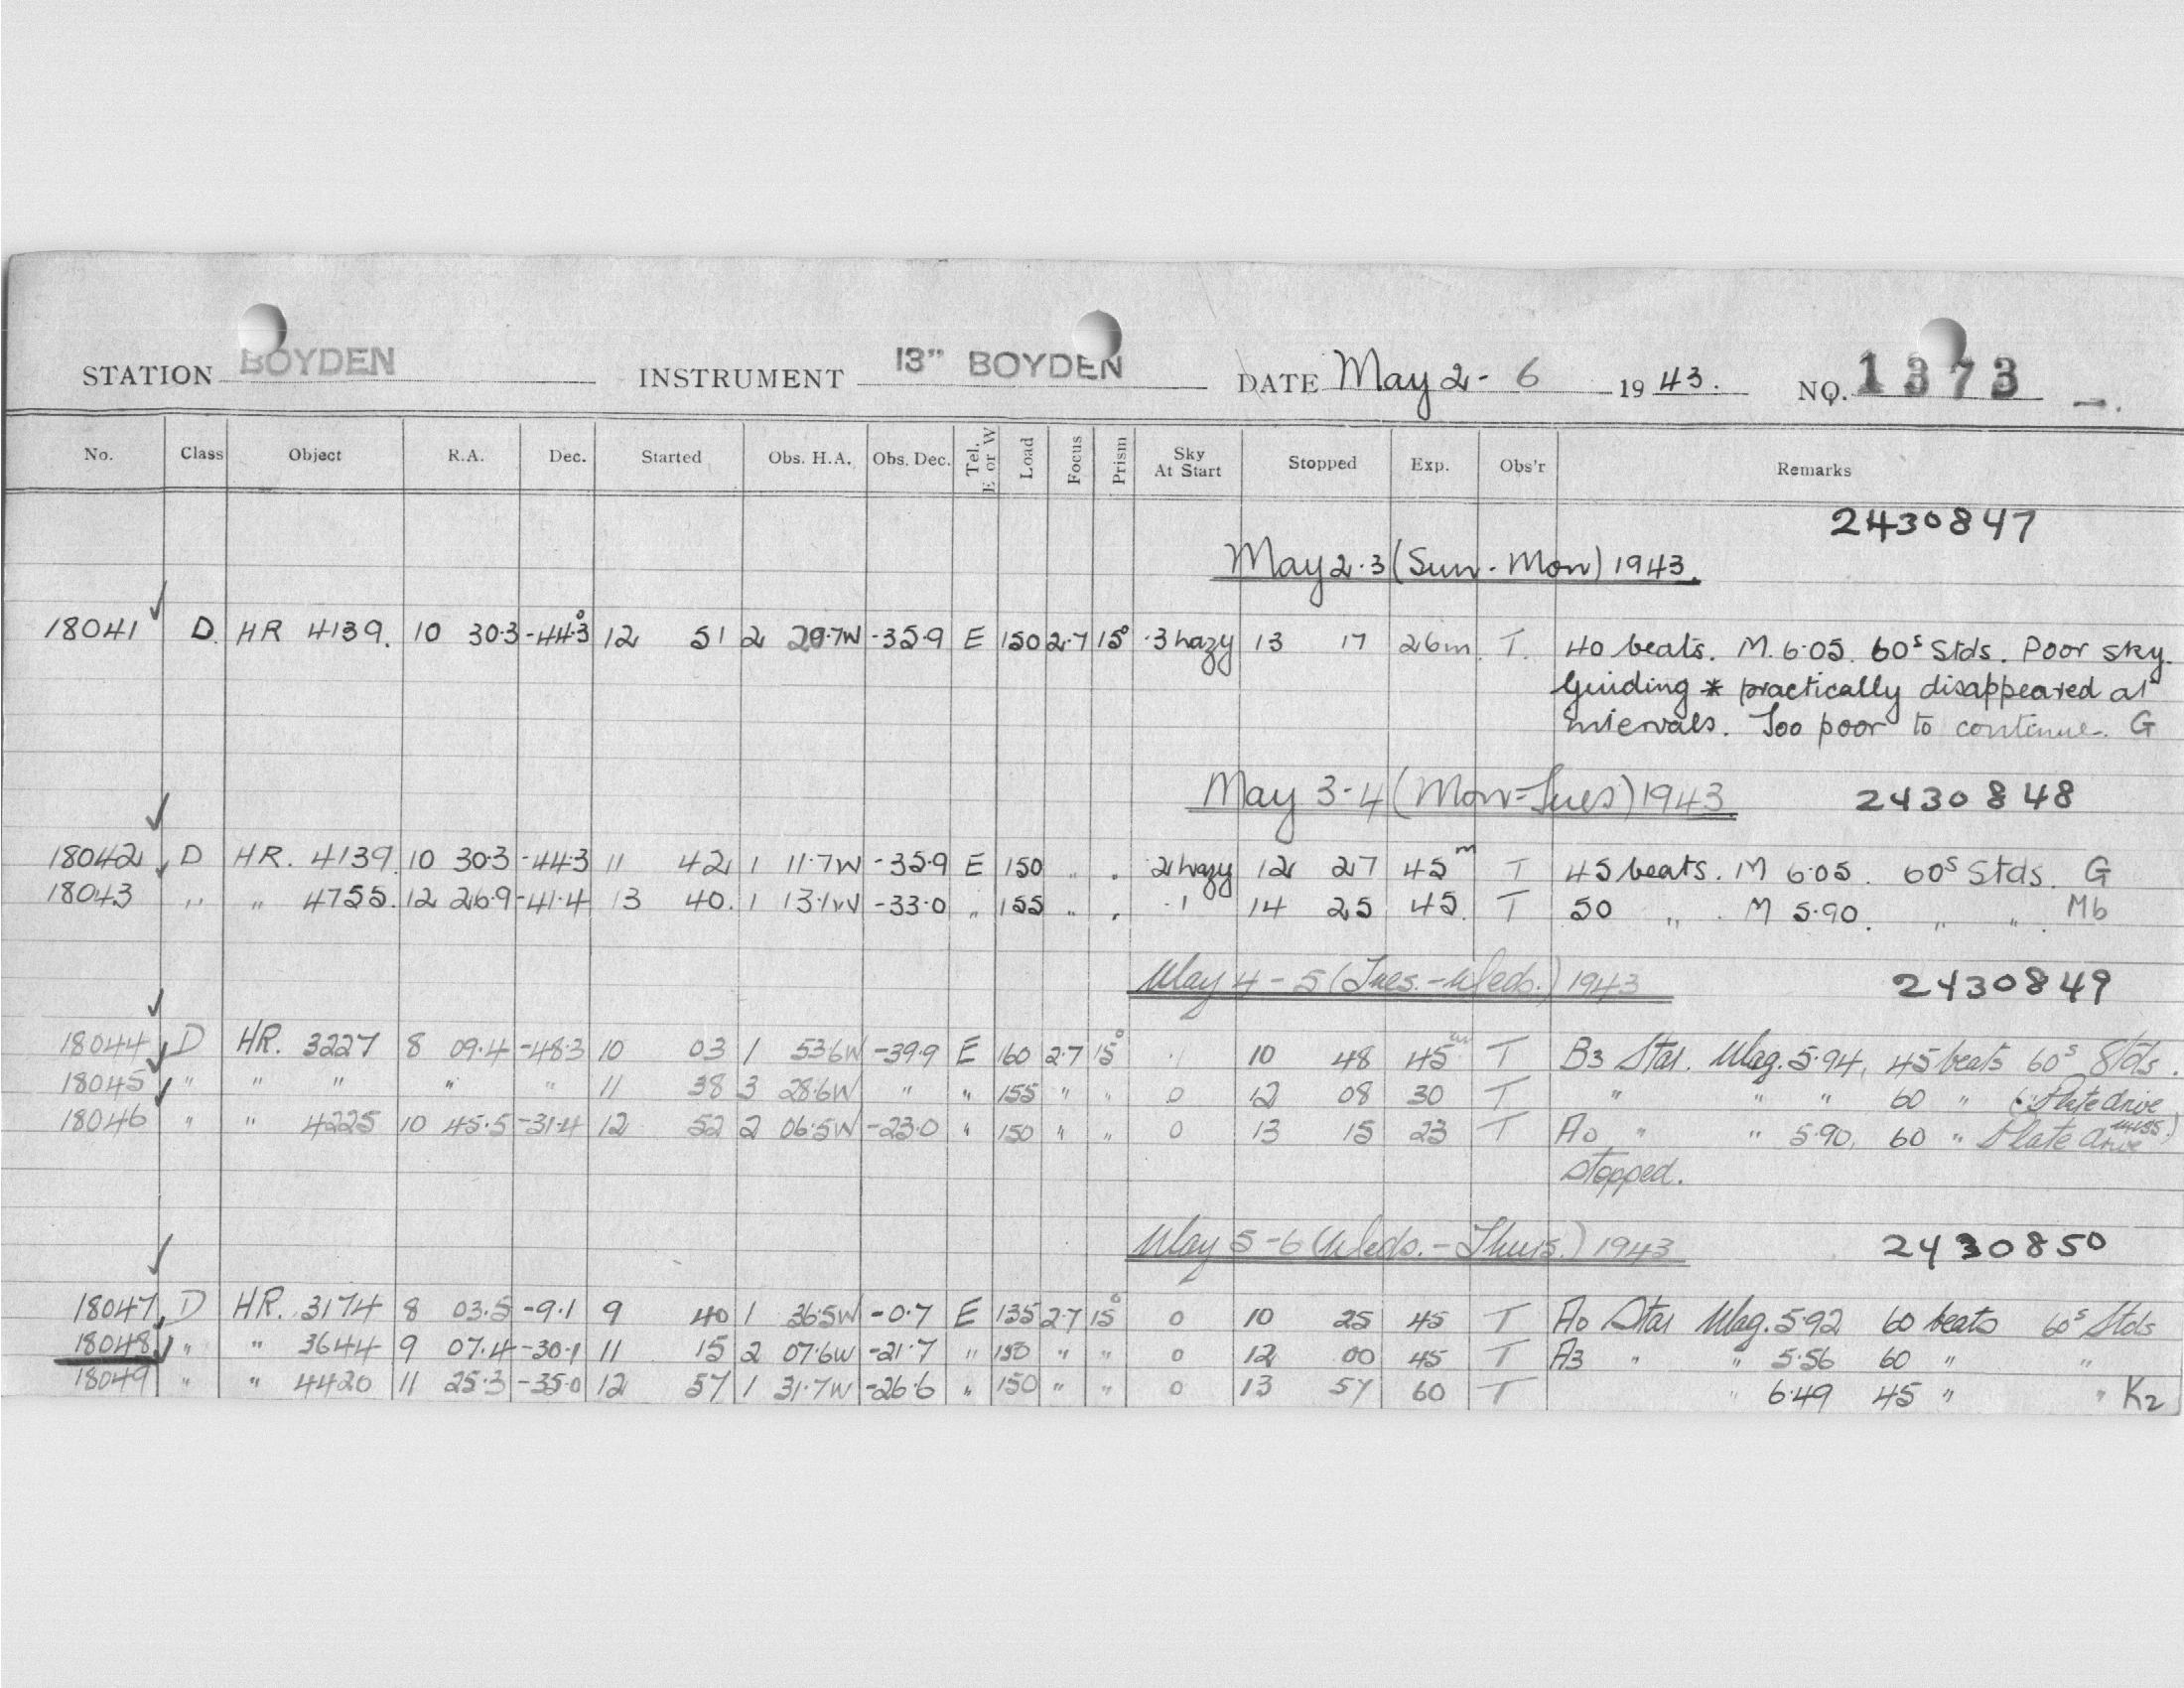 STATION BOYDEN INSTRUMENT 13" BOYDEN DATE May 2 - 6 1943. NO. 1373
No. Class Object R.A. Dec. Started Obs. H.A. Obs. Dec. Tel. E or W Load Focus Prism Sky At Start Stopped Exp. Obs'r Remarks
2430847
May 2.3 (Sun - Mon) 1943.
18041 D. HR 4139. 10 30.3 -44.3° 12 51 2 20.7W -35.9 E 150 2.7 15° .3 hazy 13 17 26m. T. 40 beats. M. 6.05. 60s Stds. Poor sky.
Guiding * practically disappeared at
intervals. Too poor to continue. G
May 3-4 (Mon-Tues) 1943 2430848
18042 D HR. 4139 10 30.3 -44.3 11 42 1 11.7W -35.9 E 150 " " .2 hazy 12 27 45m T 45 beats. M 6.05. 60s Stds. G
18043 " " 4755. 12 26.9 -41.4 13 40. 1 13.1W -33.0 " 155 " " .1 14 25 45. T 50 " . M 5.90. " " . Mb
May 4 - 5 (Tues. - Weds.) 1943 2430849
18044 D HR. 3227 8 09.4 -48.3 10 03 1 53.6W -39.9 E 160 2.7 15° .1 10 48 45m T B3 Star. Mag. 5.94, 45 beats 60s Stds.
18045 " " " " " 11 38 3 28.6W " " 155 " " 0 12 08 30 T " " " 60 " (Plate drive
18046 " " 4225 10 45.5 -31.4 12 52 2 06.5W -23.0 " 150 " " 0 13 15 23 T A0 " " 5.90, 60 " Plate drive
stopped.
May 5 - 6 (Weds. - Thurs.) 1943 2430850
18047 D HR. 3174 8 03.5 -9.1 9 40 1 36.5W -0.7 E 135 2.7 15° 0 10 25 45 T A0 Star Mag. 5.92 60 beats 60s Stds
18048 " " 3644 9 07.4 -30.1 11 15 2 07.6W -21.7 " 150 " " 0 12 00 45 T A3 " " 5.56 60 " "
18049 " " 4420 11 25.3 -35.0 12 57 1 31.7W -26.6 " 150 " " 0 13 57 60 T " 6.49 45 " " K2